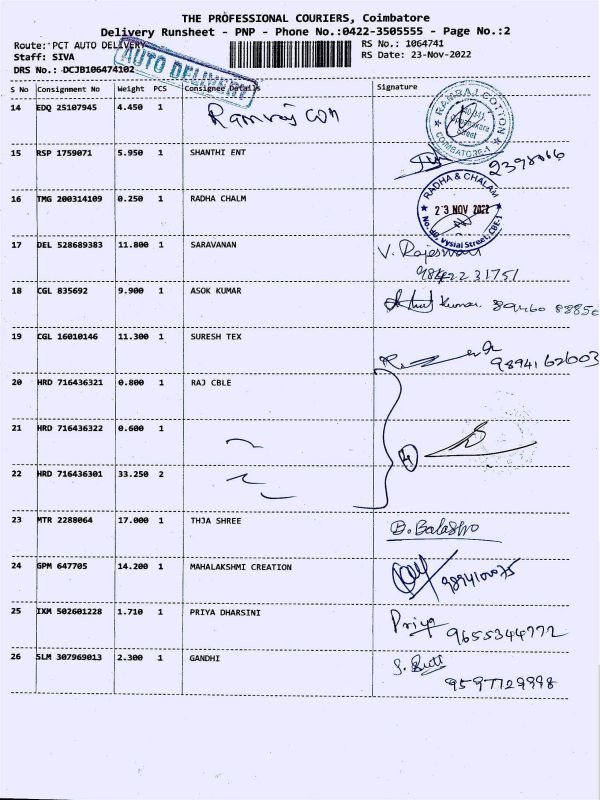 THE PROFESSIONAL COURIERS, Coimbatore
Delivery Runsheet - PNP - Phone No.:0422-3505555 - Page No.:2
Route: PCT AUTO DELIVERY
RS No.: 1064741
Staff: SIVA
RS Date: 23-Nov-2022
DRS No.: DCJB106474102
AUTO DELIVERY
S No Consignment No Weight PCS Consignee Details Signature
14 EDQ 25107945 4.450 1 Ramraj con
RAMRAJ COTTON
Street
COIMBATORE-1
15 RSP 1759071 5.950 1 SHANTHI ENT
16 TMG 200314109 0.250 1 RADHA CHALM
RADHA & CHALAM
23 NOV 2022
Vysial Street, CBE-1
17 DEL 528689383 11.800 1 SARAVANAN V. Rajeswari
18 CGL 835692 9.900 1 ASOK KUMAR Kumar
19 CGL 16010146 11.300 1 SURESH TEX
9894162603
20 HRD 716436321 0.800 1 RAJ CBLE
21 HRD 716436322 0.600 1
4
22 HRD 716436301 33.250 2
23 MTR 2288064 17.000 1 THJA SHREE
24 GPM 647705 14.200 1 MAHALAKSHMI CREATION
9894100075
25 IXM 502601228 1.710 1 PRIYA DHARSINI Priya
9655344772
26 SLM 307969013 2.300 1 GANDHI
9597729998